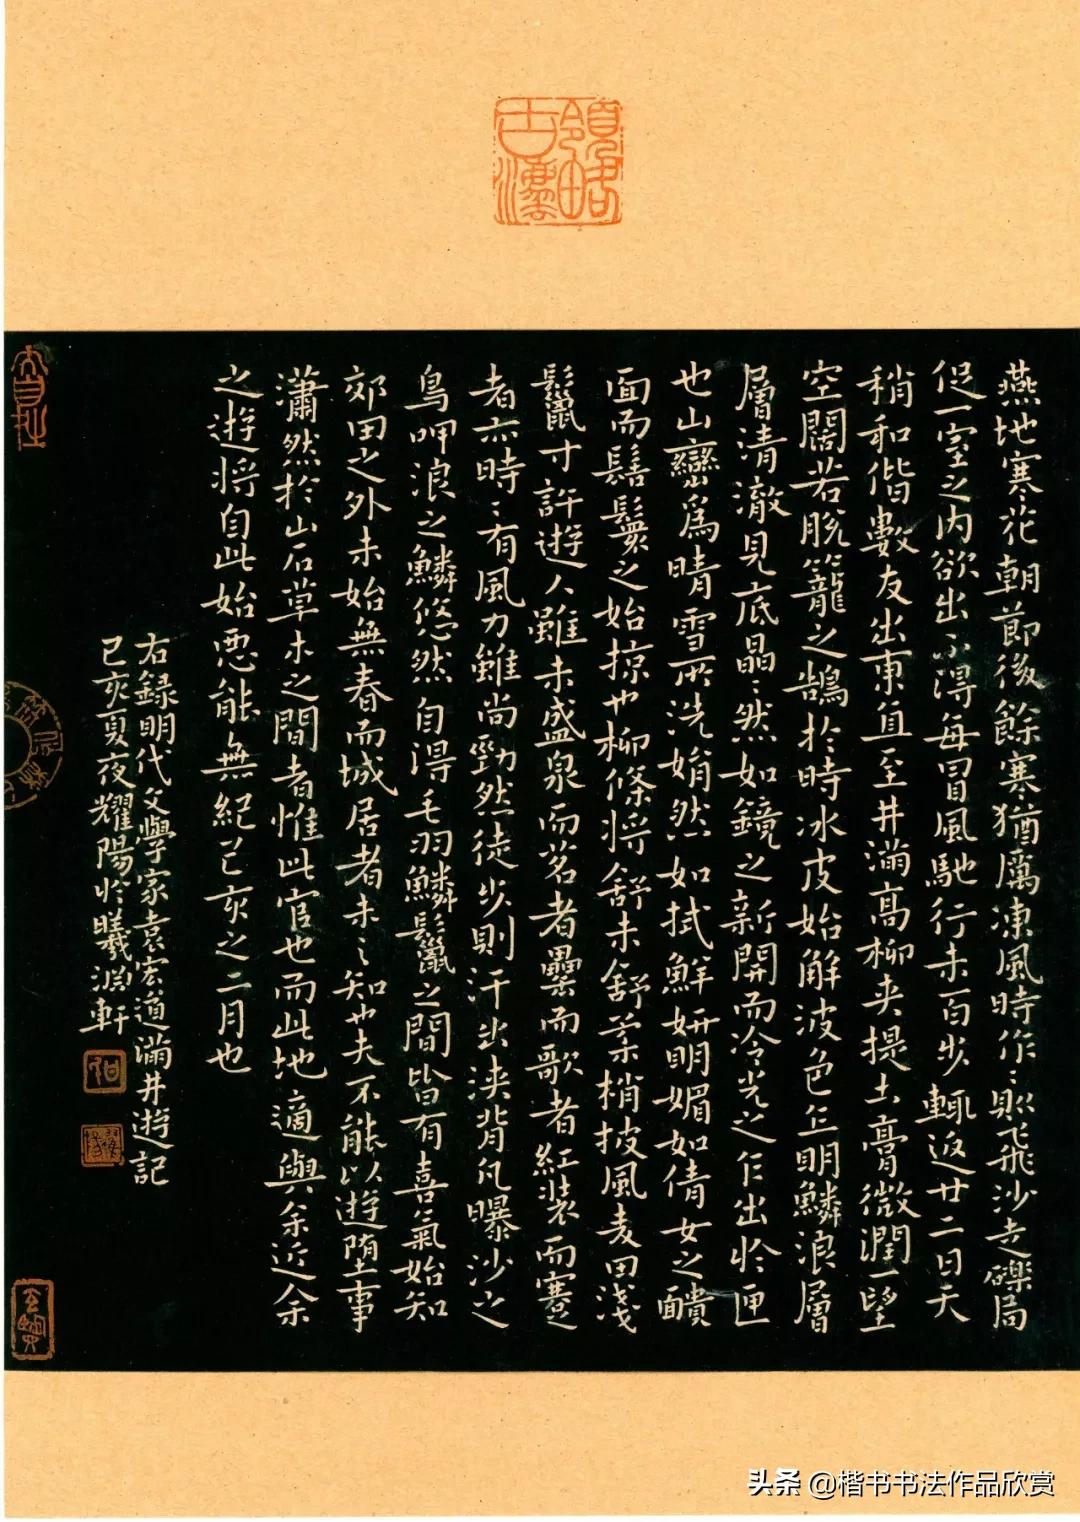 領略古瀍
燕地寒花朝節後餘寒猶厲凍風時作〻則飛沙走礫局
促一室之内欲出不得每冒風馳行未百步輒返廿二日天
稍和偕數友出東直至井滿高柳夹提土膏微潤一望
空闊若脱籠之鵠於時冰皮始解波色乍明鱗浪層
層清澈見底晶〻然如鏡之新開而冷光之乍出於匣
也山巒爲晴雪所洗娟然如拭鮮妍明媚如倩女之靧
面而髻鬟之始掠也柳條将舒未舒柔梢披風麦田淺
鬣寸許遊人雖未盛泉而茗者罍而歌者紅装而蹇
者亦時〻有風力雖尚勁然徒步則汗出浹背凡曝沙之
鳥呷浪之鱗悠然自得毛羽鱗鬣之間皆有喜氣始知
郊田之外未始無春而城居者未之知也夫不能以遊堕事
瀟然於山石草木之間者惟此官也而此地適與余近余
之遊将自此始恶能無紀己亥之二月也
右録明代文學家袁宏道滿井遊記
己亥夏夜耀陽於曦淵軒
头条 @楷书书法作品欣赏